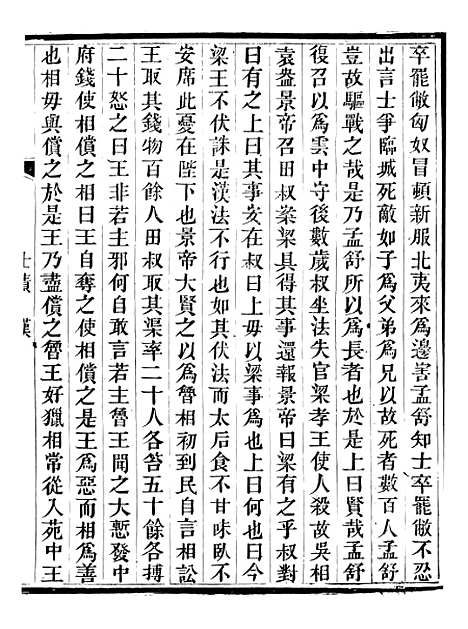 卒罷敝匈奴冒頓新服北夷來爲邊害孟舒知士卒罷敝不忍
出言士爭臨城死敵如子爲父弟爲兄以故死者數百人孟舒
豈故驅戰之哉是乃孟舒所以爲長者也於是上曰賢哉孟舒
復召以爲雲中守後數歲叔坐法失官梁孝王使人殺故吳相
袁盎景帝召田叔案梁具得其事還報景帝曰梁有之乎叔對
曰有之上曰其事安在叔曰上毋以梁事爲也上曰何也曰今
梁王不伏誅是漢法不行也如其伏法而太后食不甘味臥不
安席此憂在陛下也景帝大賢之以爲魯相初到民自言相訟
王取其錢物百餘人田叔取其渠率二十人各笞五十餘各搏
二十怒之曰王非若主邪何自敢言若主魯王聞之大慙發中
府錢使相償之相曰王自奪之使相償之是王爲惡而相爲善
也相毋與償之於是王乃盡償之魯王好獵相常從入苑中王
漢